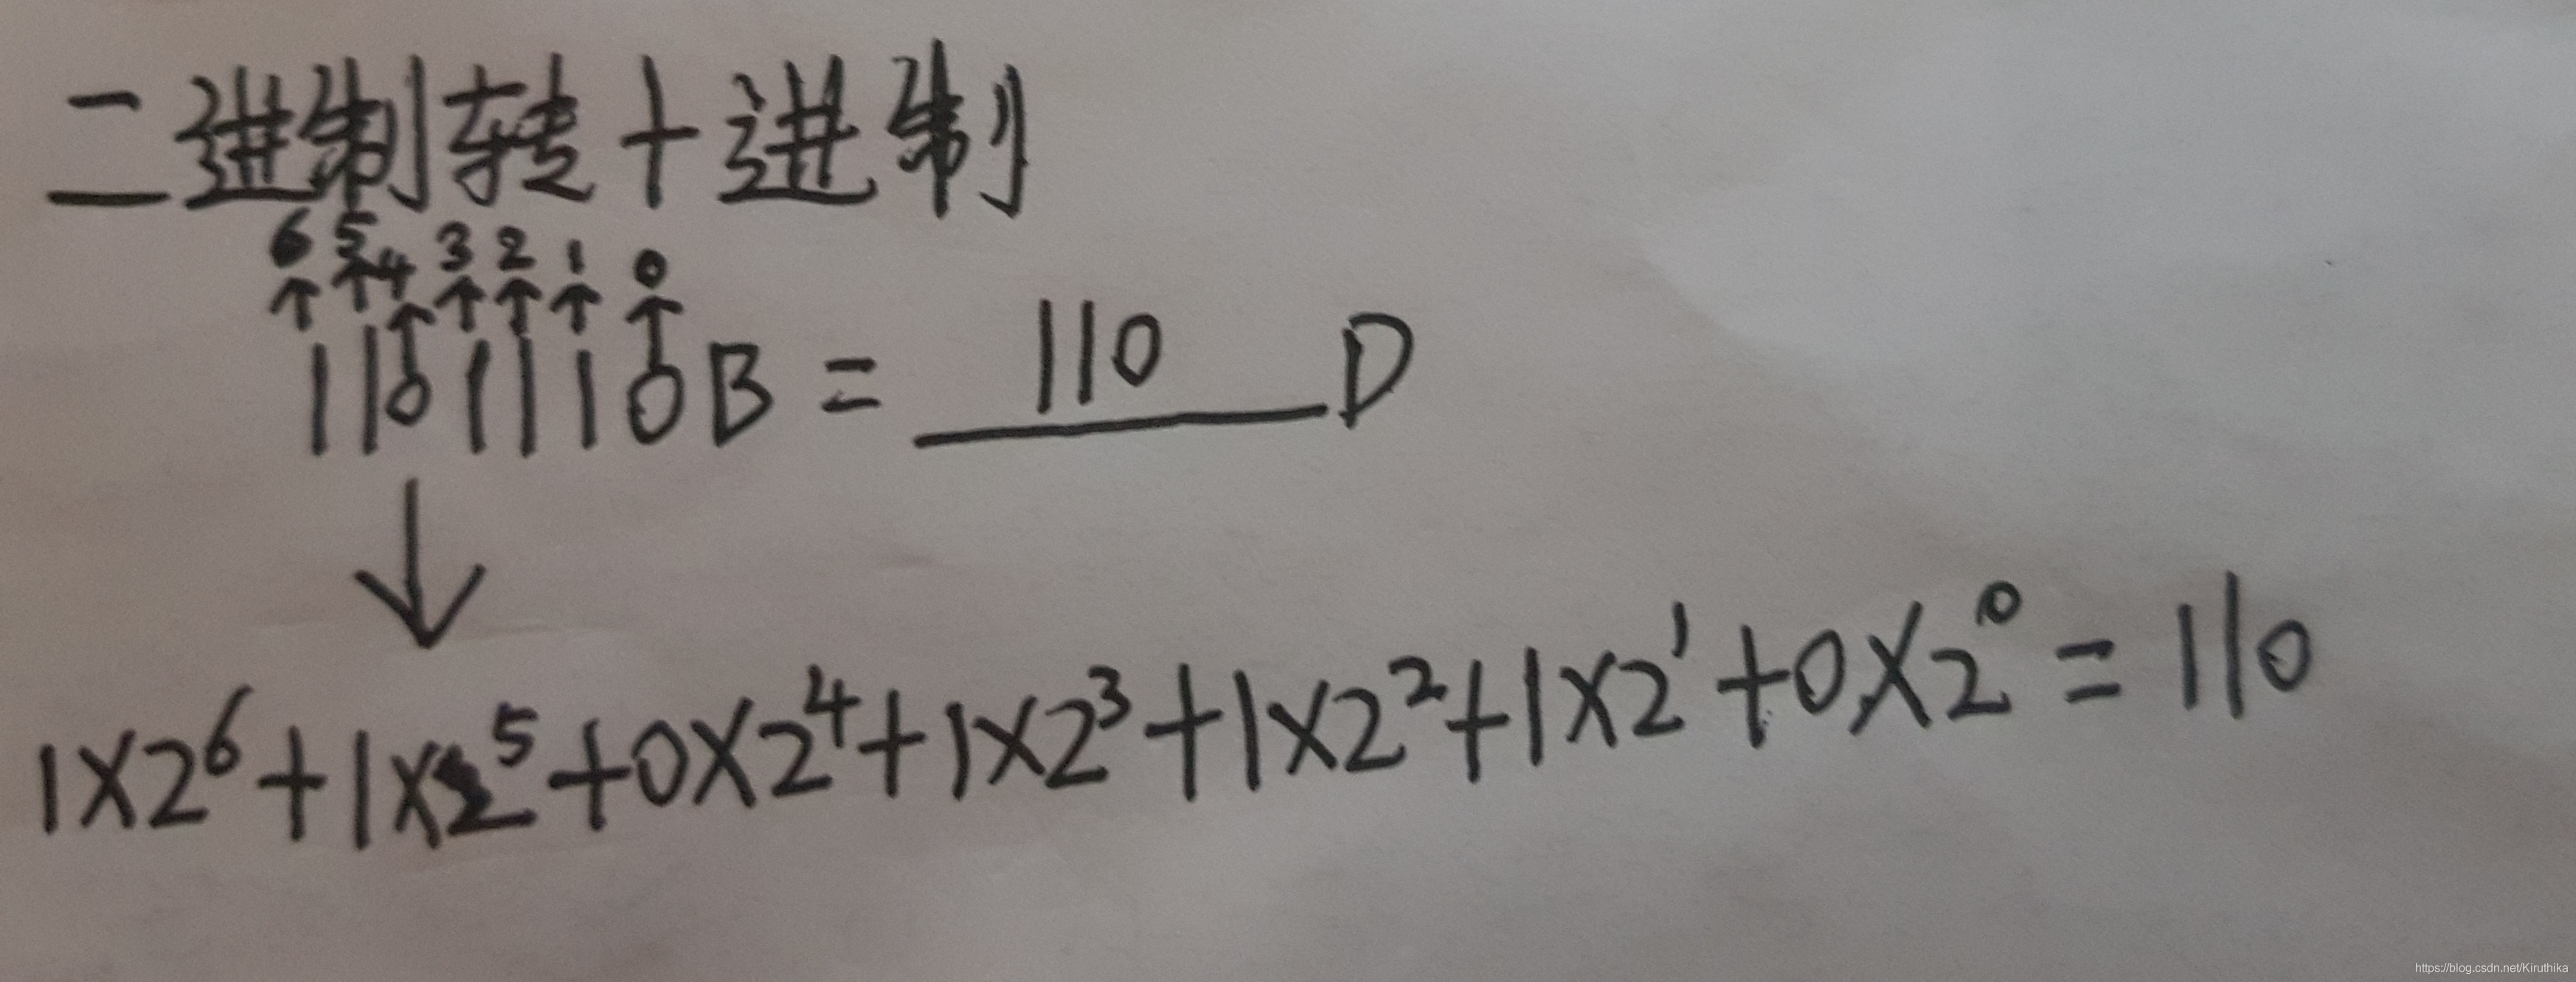 二进制转十进制
6 5 4 3 2 1 0
1101110B = 110 D
1×2⁶+1×2⁵+0×2⁴+1×2³+1×2²+1×2¹+0×2⁰=110
https://blog.csdn.net/Kiruthika